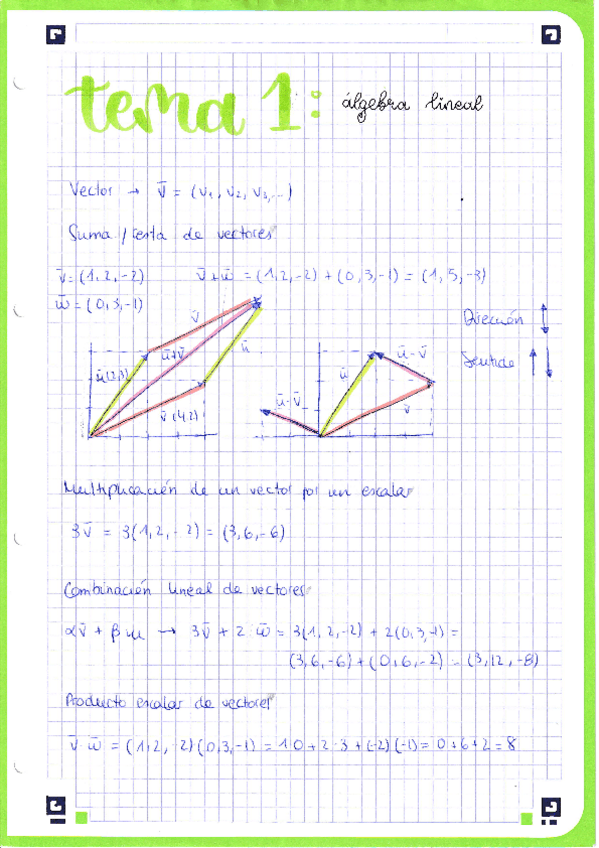 tema 1: álgebra lineal
Vector → v̄ = (v₁, v₂, v₃, ...)
Suma / resta de vectores
v̄ = (1, 2, -2)
v̄ + w̄ = (1, 2, -2) + (0, 3, -1) = (1, 5, -3)
w̄ = (0, 3, -1)
Dirección ↕
Sentido ↑↓
v̄
ū+v̄
ū
ū(2,3)
v̄(4,2)
ū-v̄
ū
ū-v̄
v
Multiplicación de un vector por un escalar
3v̄ = 3(1, 2, -2) = (3, 6, -6)
Combinación lineal de vectores
αv̄ + βw → 3v̄ + 2·w̄ = 3(1, 2, -2) + 2(0, 3, -1) =
(3, 6, -6) + (0, 6, -2) = (3, 12, -8)
Producto escalar de vectores
v̄·w̄ = (1, 2, -2)(0, 3, -1) = 1·0 + 2·3 + (-2)(-1) = 0+6+2 = 8